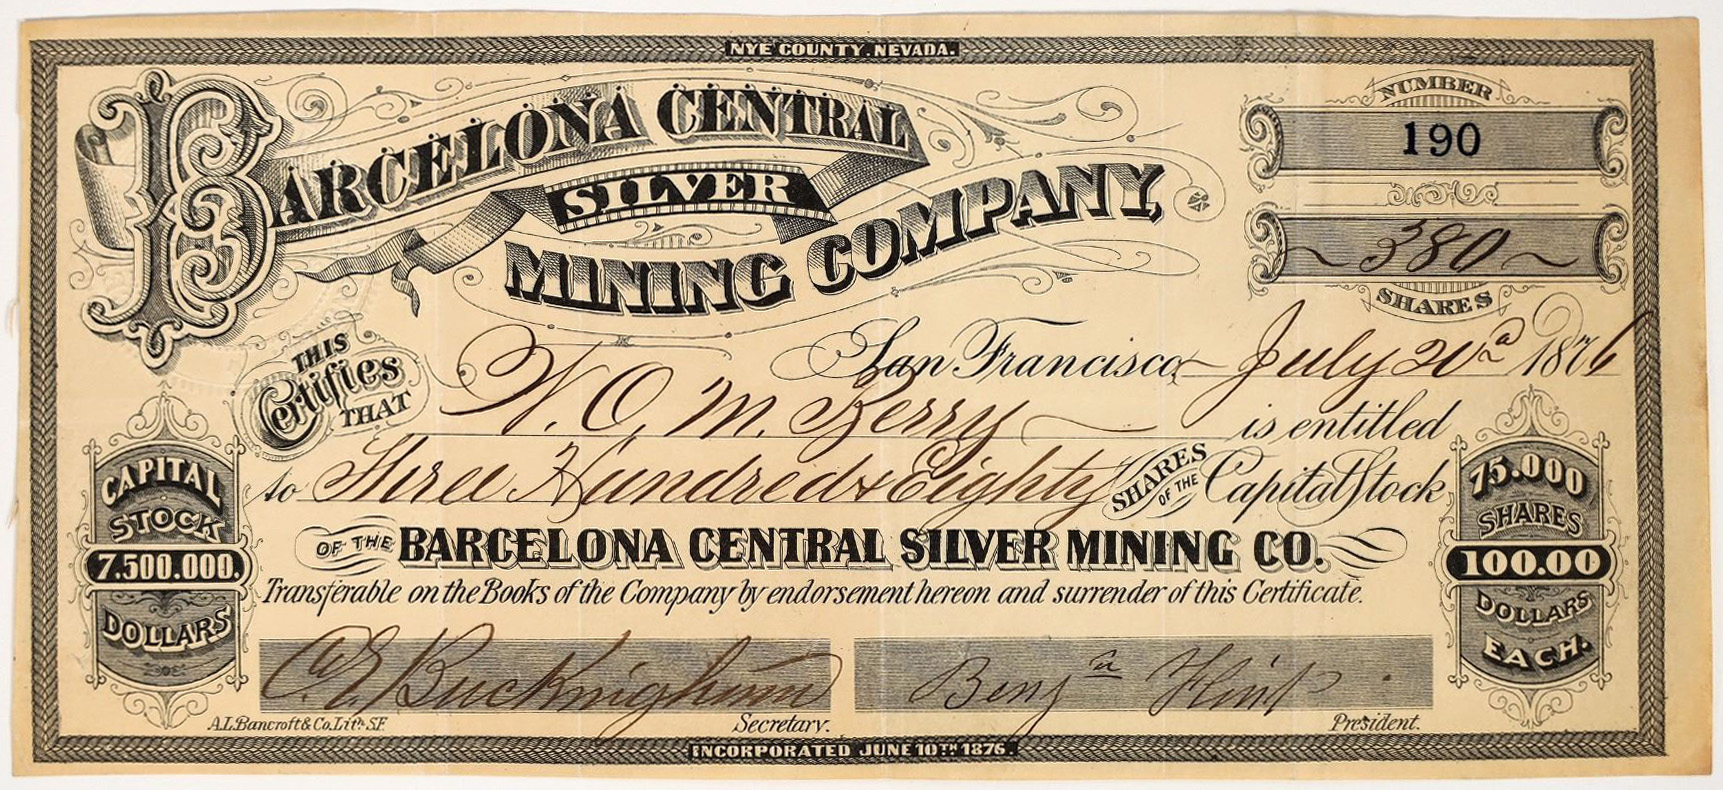 NYE COUNTY. NEVADA.
BARCELONA CENTRAL
SILVER
MINING COMPANY,
NUMBER
190
380
SHARES
San Francisco July 20 1876
THIS Certifies THAT W. O. M. Berry is entitled
to Three Hundred & Eighty SHARES OF THE Capital Stock
OF THE BARCELONA CENTRAL SILVER MINING CO.
Transferable on the Books of the Company by endorsement hereon and surrender of this Certificate.
CAPITAL
STOCK
7.500.000.
DOLLARS
75.000
SHARES
100.00
DOLLARS
EACH.
Buckingham
Secretary.
Benj Flint
President.
A.L. Bancroft & Co. Lith. S.F.
INCORPORATED JUNE 10TH 1876.